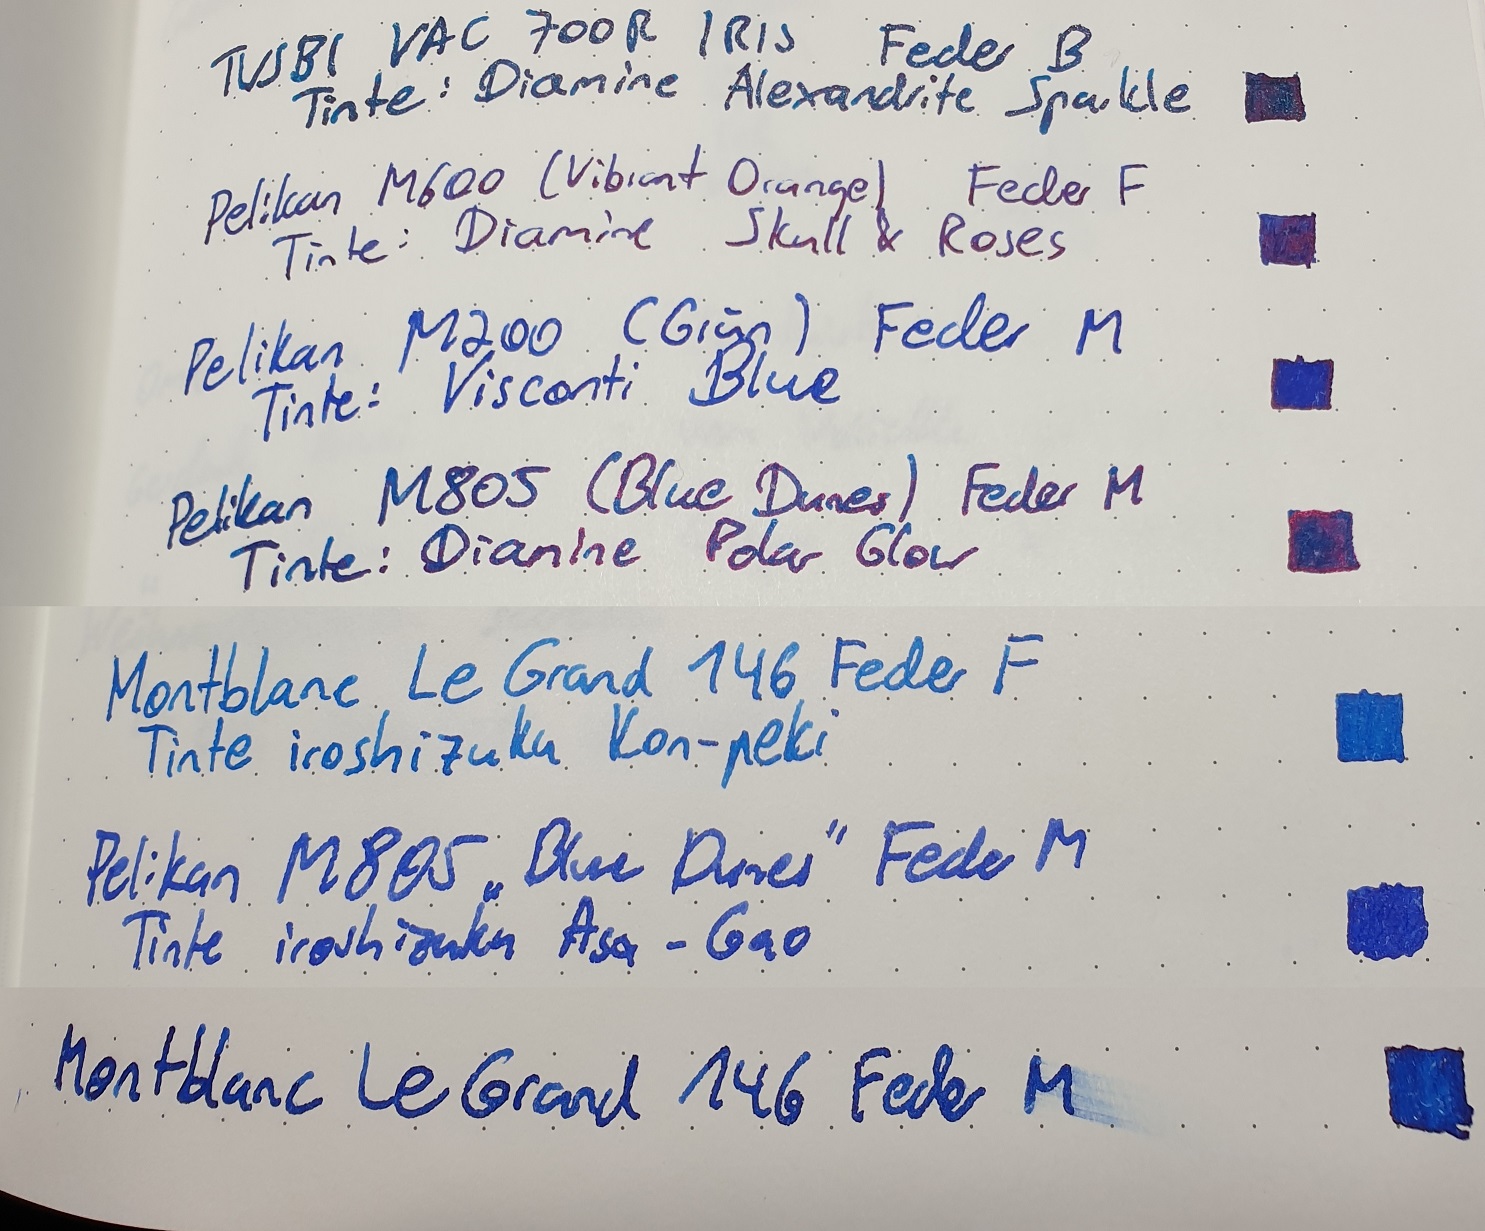 TWSBI VAC 700R IRIS Feder B
Tinte: Diamine Alexandrite Sparkle
Pelikan M600 (Vibrant Orange) Feder F
Tinte: Diamine Skull & Roses
Pelikan M200 (Grün) Feder M
Tinte: Visconti Blue
Pelikan M805 (Blue Dunes) Feder M
Tinte: Diamine Polar Glow
Montblanc Le Grand 146 Feder F
Tinte iroshizuku Kon-peki
Pelikan M805 „Blue Dunes“ Feder M
Tinte iroshizuku Asa-Gao
Montblanc Le Grand 146 Feder M